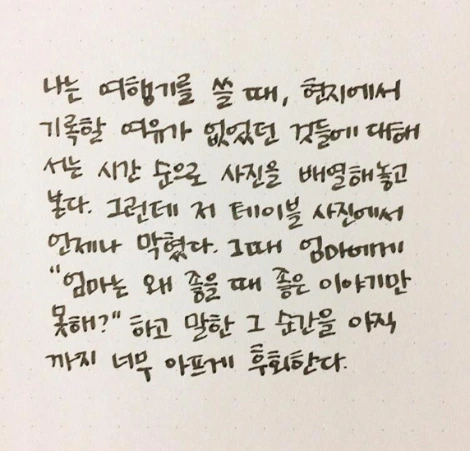 나는 여행기를 쓸 때, 현지에서
기록할 여유가 없었던 것들에 대해
서는 시간 순으로 사진을 배열해놓고
본다. 그런데 저 테이블 사진에서
언제나 막혔다. 그때 엄마에게
"엄마는 왜 좋을 때 좋은 이야기만
못해?" 하고 말한 그 순간을 아직
까지 너무 아프게 후회한다.